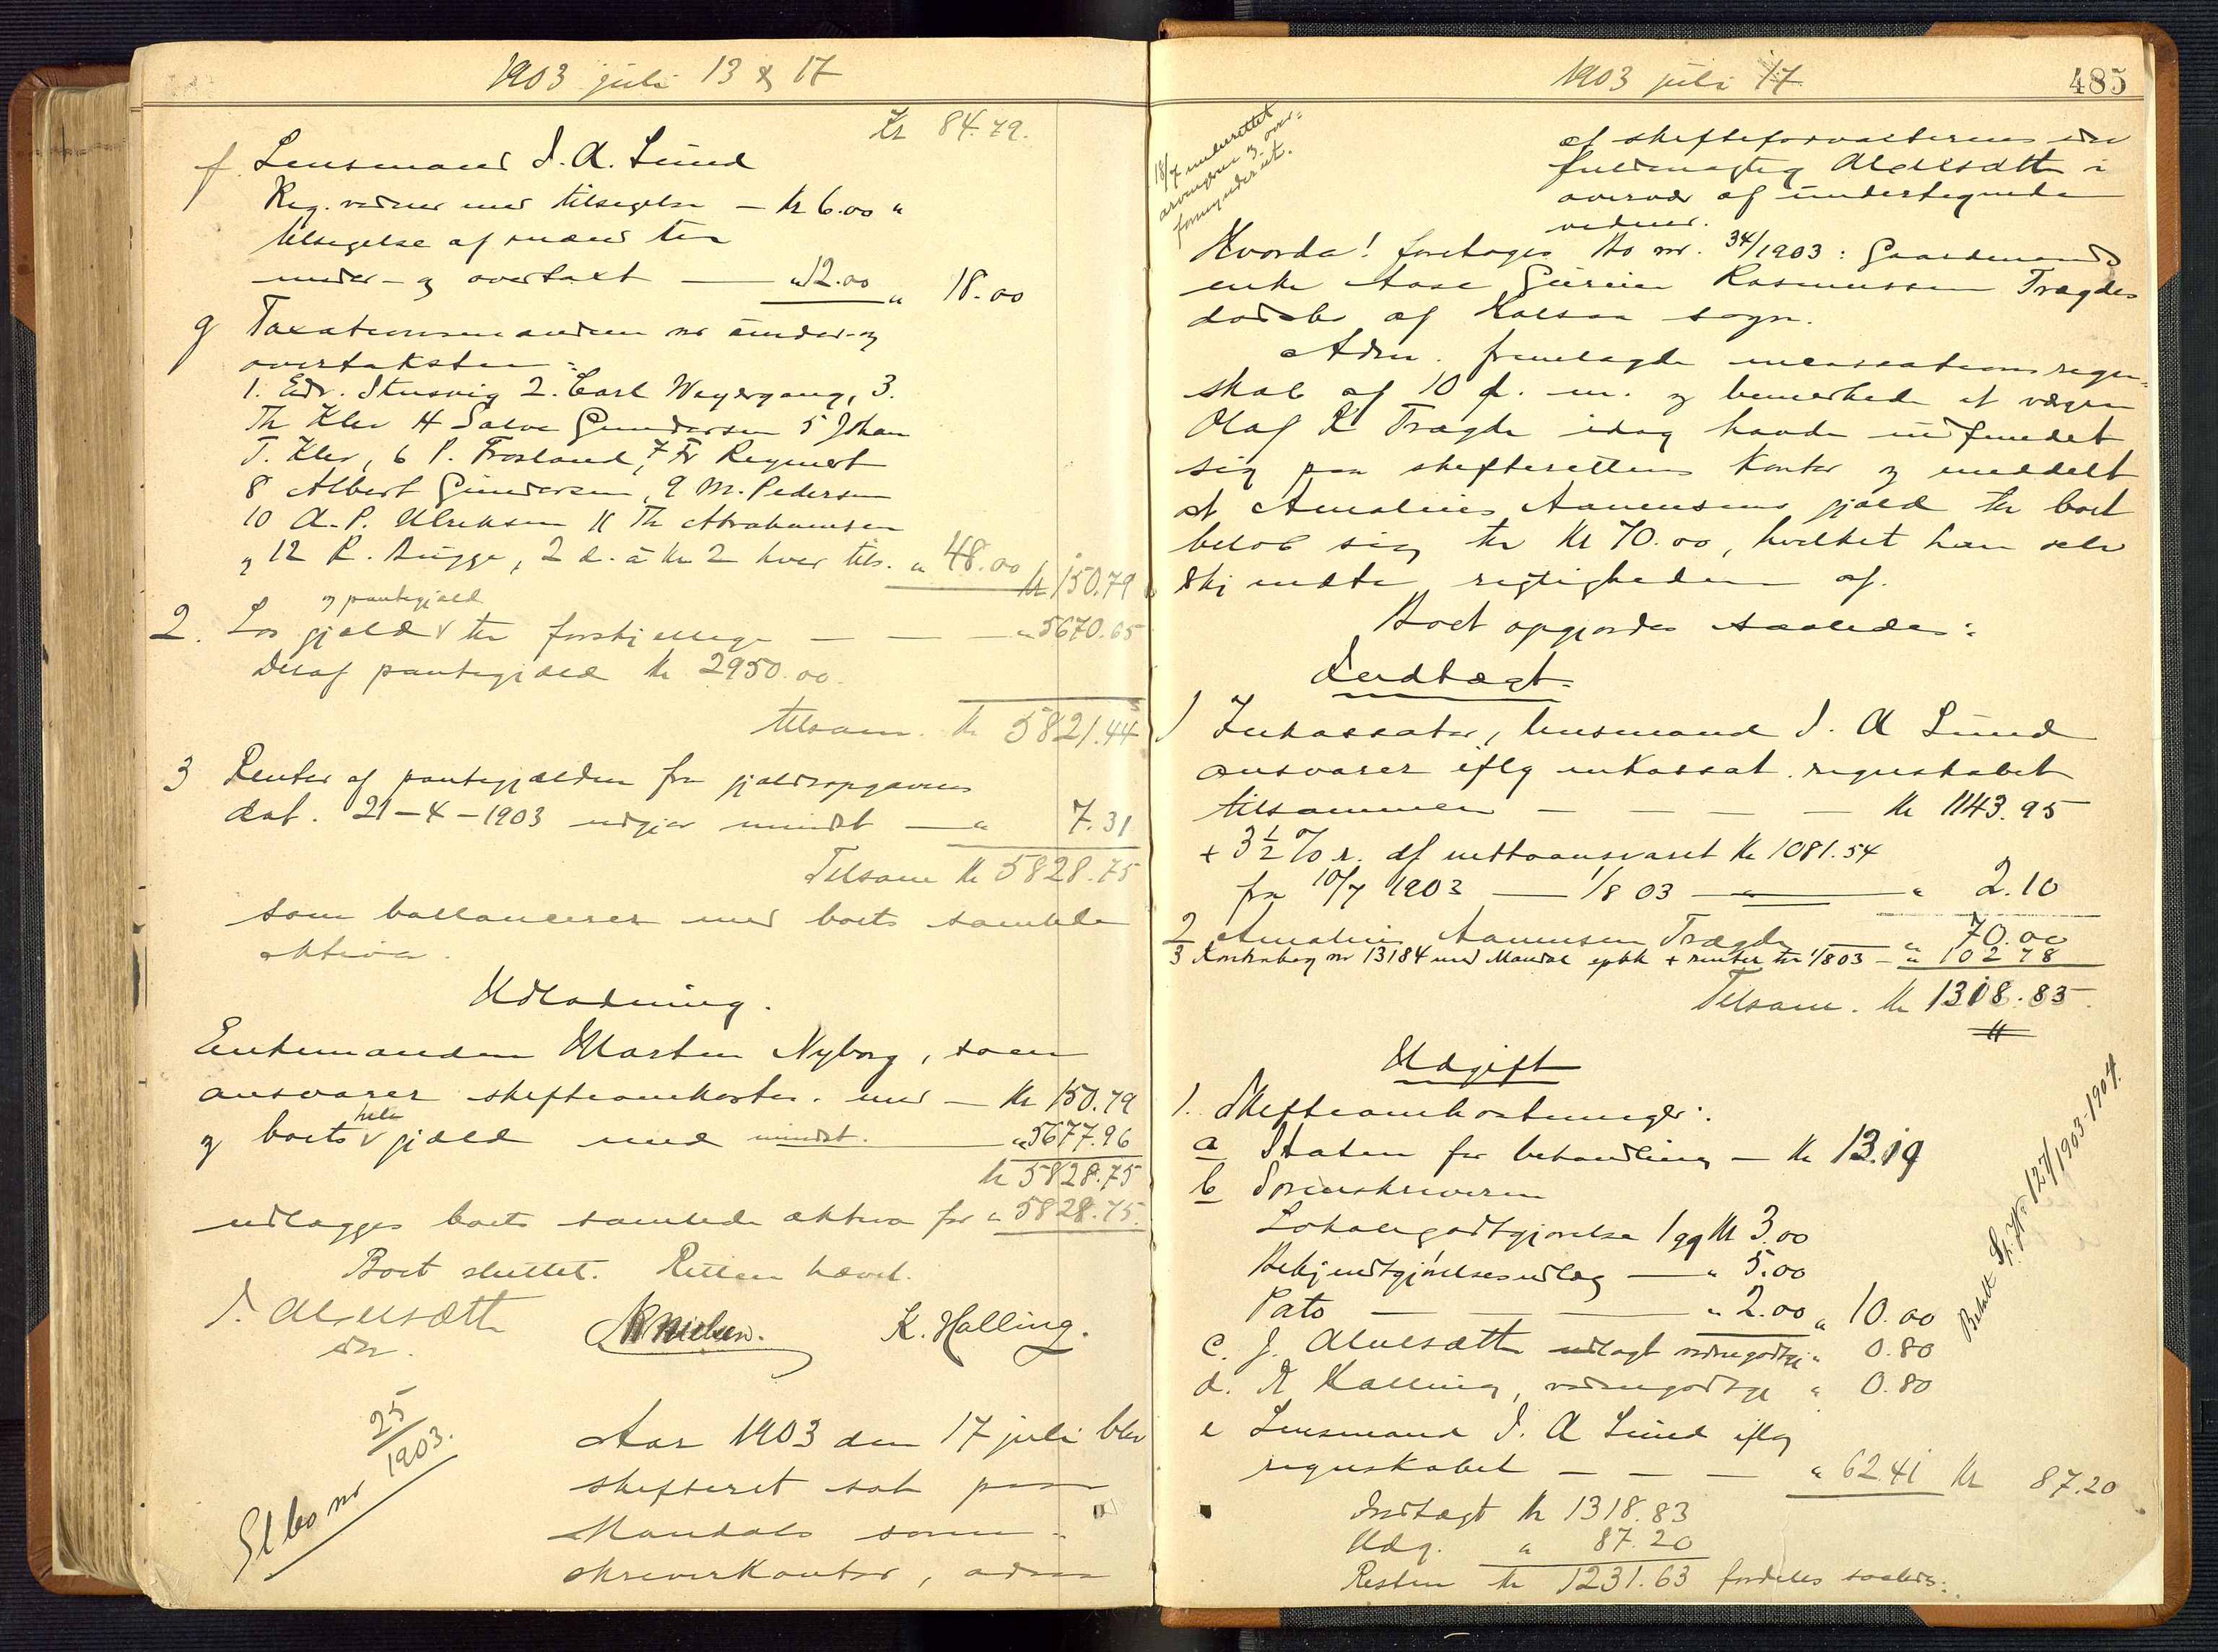 1903 juli 13 & 17
Kr 84.79.
f. Lensmand J. A. Lund
Reg. vidner med tilsigelse — kr 6.00 "
tilsigelse af mænd til
under- og overtaxt — " 12.00 " 18.00
g Taxationsmændene ved under- og
overtaksten:
1. Edv. Stusvig 2. Carl Weyergang, 3.
Th Klev 4 Salve Gundersen 5 Johan
T. Klev, 6 P. Frøsland, 7 Fr Regnert
8 Albert Gundersen, 9 M. Pedersen
10 A. P. Ulriksen 11 Th Abrahamsen
og 12 R. Bugge, 2 d. à kr 2 hver tils. " 48.00
kr 150.79
og pantegjæld
2. Løs gjæld v til forskjellige — — — " 5670.65
Deraf pantegjæld kr 2950.00.
tilsam. kr 5821.44
3 Renter af pantegjælden fra gjældsopgavens
dat. 21-4-1903 udgjør mindst — " 7.31
Tilsam kr 5828.75
som ballancerer med boets samlede
aktiva.
Udlodning.
Enkemanden Morten Nyborg, som
ansvarer skifteomkostn. med — kr 150.79
hele
og boets v gjæld med mindst. — " 5677.96
kr 5828.75
udlægges boets samlede aktiva for " 5828.75.
Boet sluttet. Retten hævet.
J. Alvesætte
edv.
NNielsen.
K. Halling.
Sl bo nr 25/1903.
Aar 1903 den 17 juli blev
skifteret sat paa
Mandals soren-
skriverkontor, adm
1903 juli 17
485
18/7 underettet
arvingerne og over-
formynderiet.
af skifteforvalterens edv
fuldmægtig Alvesætte i
overvær af undertegnede
vidner.
Hvorda! foretoges bo nr. 34/1903: Gaardmands
enke Aase Gurine Rasmussen Trægdes
dødsbo af Halsaa sogn.
Adm. fremlagde incassationsregn-
skab af 10 d. m. og bemerkede at værgen
Olaf K Trægde idag havde indfundet
sig paa skifterettens kontor og meddelt
at Amalies Aanensens gjæld til boet
beløb sig til kr 70.00, hvilket han selv
skjendte rigtigheden af.
Boet opgjordes saaledes:
Indtægt:
1 Inkassator, lensmand J. A Lund
ansvarer iflg inkassat. regnskabet
tilsammen — — — — kr 1143.95
+ 3 1/2 % r. af nettoansvaret kr 1081.54
fra 10/7 1903 — 1/8 03 — " — " 2.10
2 Amalie Aanensen Trægde — " 70.00
3 Kontrabog nr 13184 med Mandal spbk + renter til 1/8 03 — " 102 78
Tilsam. kr 1318.83
Udgift
1. Skifteomkostninger:
a Staten for behandling — kr 13.19
b Sorenskriveren
Lokalegodtgjørelse 1 gg kr 3.00
Bekjendtgjørelsesudlæg — " 5.00
Pato — — " 2.00 " 10.00
c. J. Alvesætte udlagt vidnegodtgj " 0.80
d. K Halling, vidnegodtgj " 0.80
e Lensmand J. A Lund iflg
regnskabet — — — " 62.41 kr 87.20
Indtægt kr 1318.83
Udg. " 87.20
Resten kr 1231.63 fordeles saaledes:
Betalt Sk. Nr 127/1903-1904.